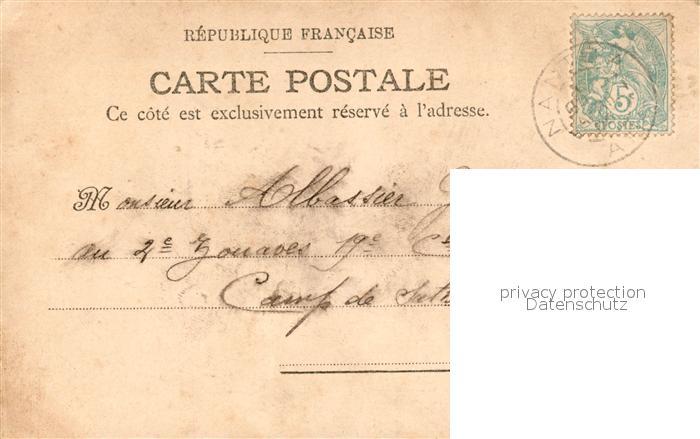 RÉPUBLIQUE FRANÇAISE
CARTE POSTALE
Ce côté est exclusivement réservé à l'adresse.
5c
POSTES
Monsieur Albassier
au 2e Zouaves 19e Cie
Camp de
privacy protection
Datenschutz